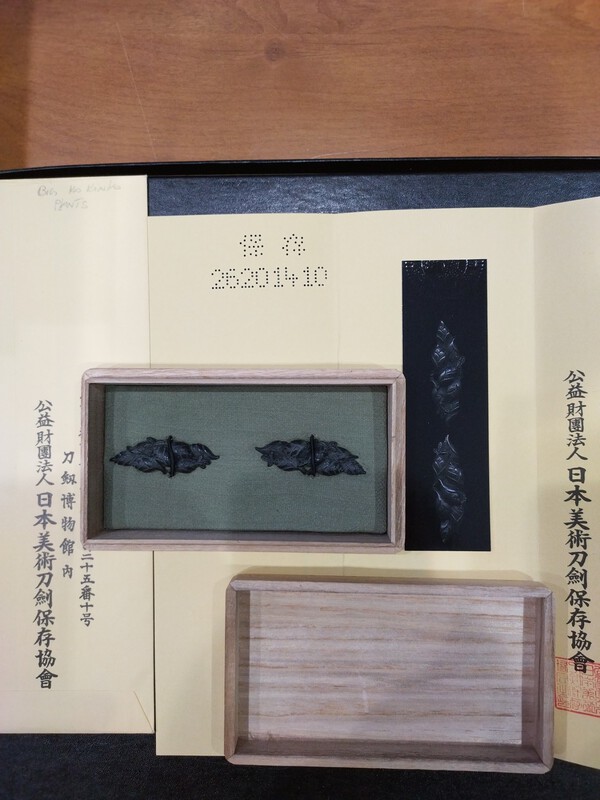 保存
26201410
公益財團法人 日本美術刀劍保存協會
二十五番十号
刀剱博物館内
公益財團法人 日本美術刀劍保存協會